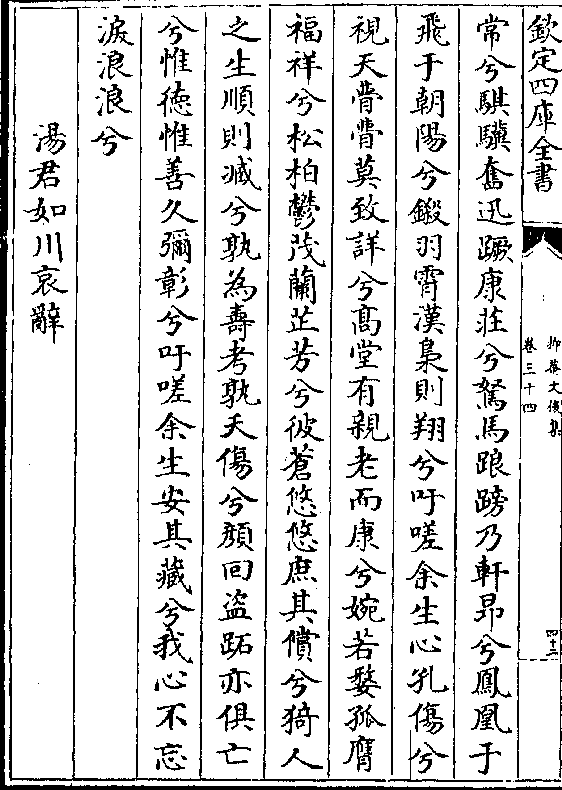 欽定四庫全書
抑菴文後集
卷三十四
四十二
常兮騏驥奮迅蹶康莊兮駑馬踉蹡乃軒昂兮鳳凰于
飛于朝陽兮鎩羽霄漢梟則翔兮吁嗟余生心孔傷兮
視天瞢瞢莫致詳兮髙堂有親老而康兮婉若嫠孤膺
福祥兮松柏鬱茂蘭芷芳兮彼蒼悠悠庶其償兮猗人
之生順則臧兮孰為壽考孰夭傷兮顔回盜跖亦俱亡
兮惟德惟善久彌彰兮吁嗟余生安其藏兮我心不忘
淚浪浪兮
湯君如川哀辭